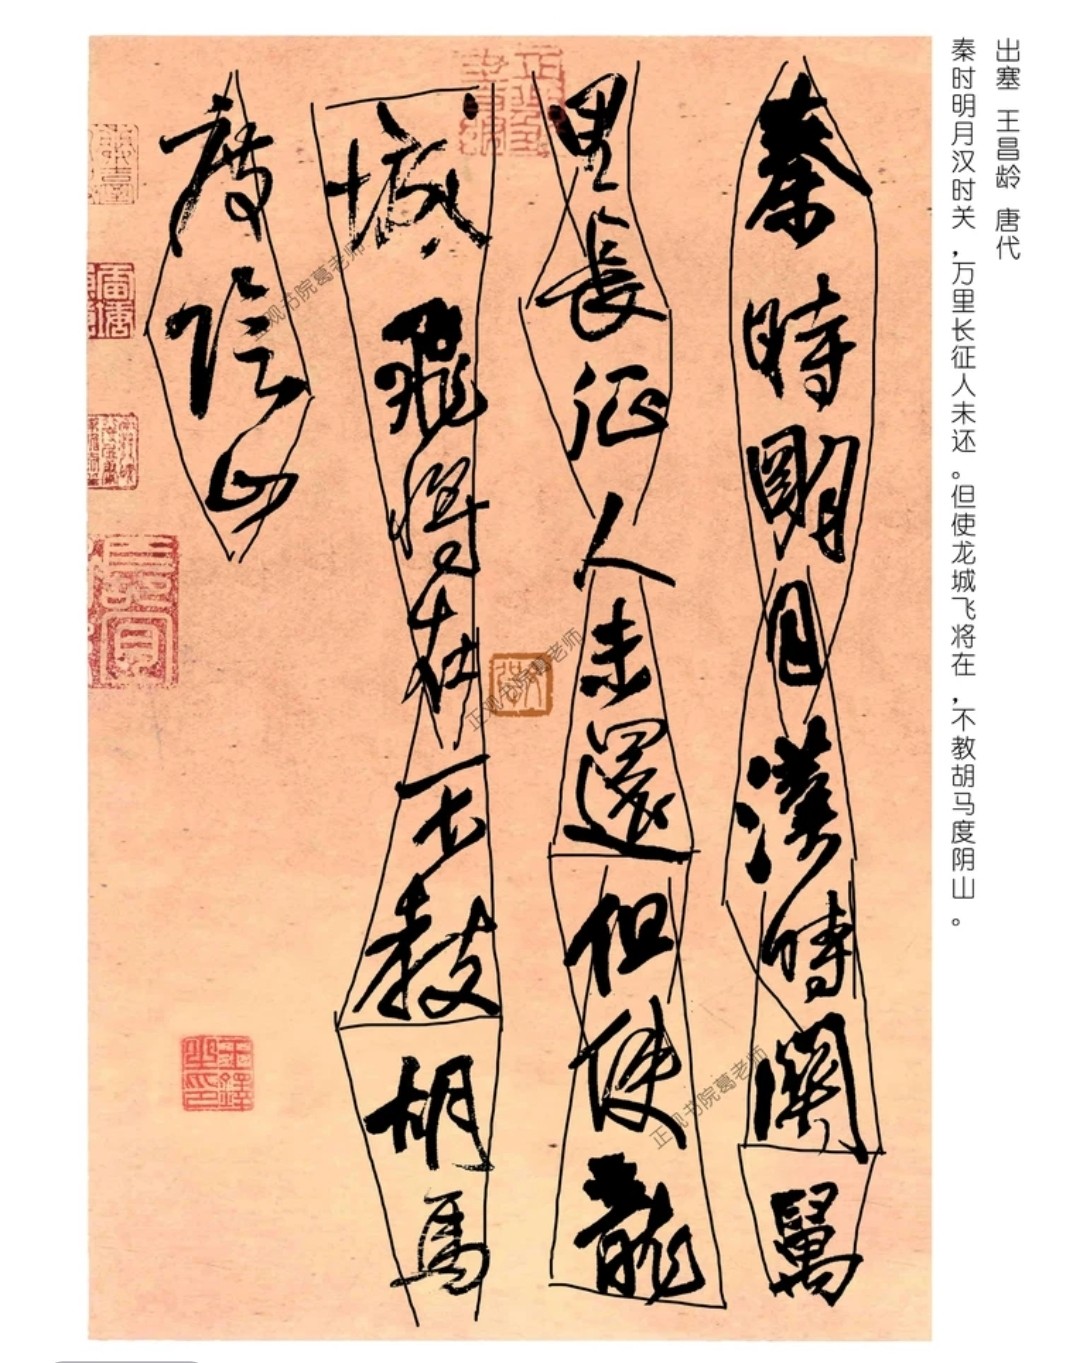 出塞 王昌龄 唐代
秦时明月汉时关，万里长征人未还。但使龙城飞将在，不教胡马度阴山。
秦時明月漢時關萬
里長征人未還但使龍
城飛將在不教胡馬
度陰山
正观书院葛老师
正观书院葛老师
正观书院葛老师